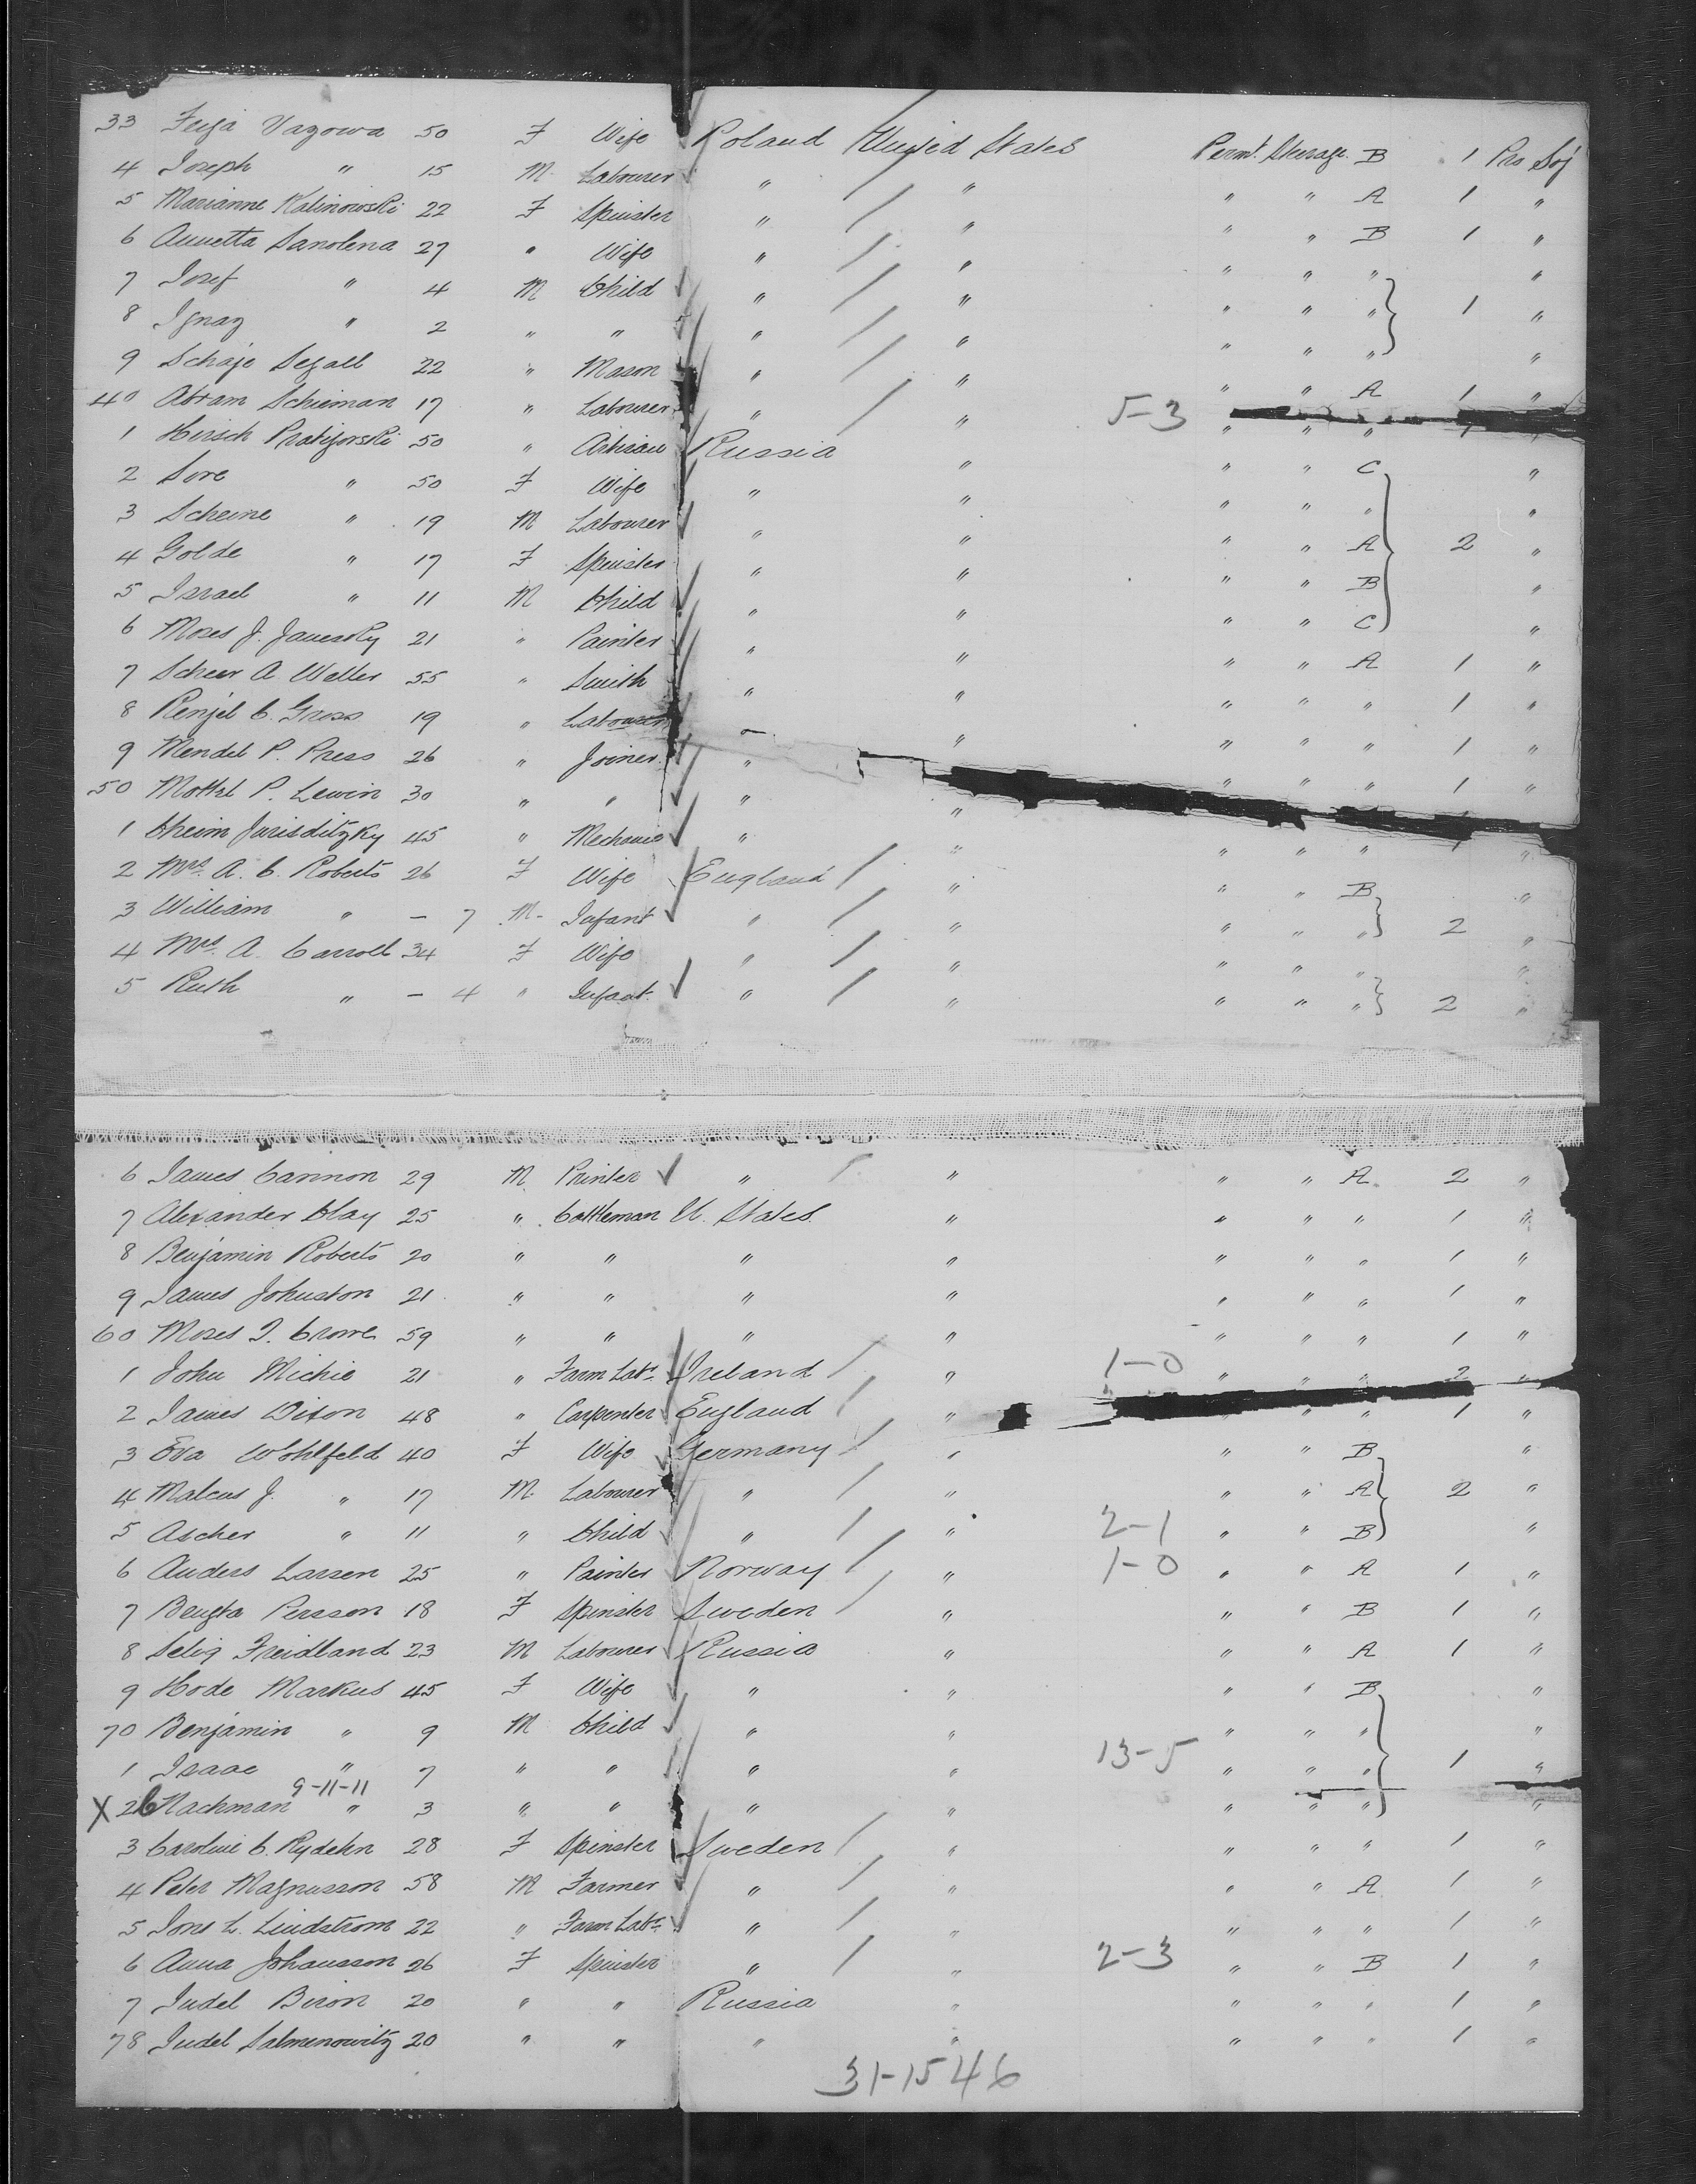 33 Feiga Vazowa 50 F Wife Poland United States Permt. Steerage. B 1 Pro Soj
4 Joseph " 15 M Labourer " " " " A 1 "
5 Marianne Kalinowski 22 F Spinster " " " " B 1 "
6 Annetta Sanolena 27 " Wife " " " " " "
7 Josef " 4 M Child " " " " " 1 "
8 Ignaz " 2 " " " " " " " "
9 Schaje Segall 22 " Mason " " " " A 1 "
40 Abram Schieman 17 " Labourer " " 5-3 " " " 1 "
1 Hirsch Pratigorski 50 " Artisan Russia " " " C "
2 Sore " 50 F Wife " " " " " "
3 Scheine " 19 M Labourer " " " " A 2 "
4 Golde " 17 F Spinster " " " " B "
5 Israel " 11 M Child " " " " C "
6 Moses J. 21 " Painter " " " " A 1 "
7 Scheer A Welter 55 " Smith " " " " " 1 "
8 C. Gross 19 " Labourer " " " " " 1 "
9 Mendel P. Press 26 " Joiner " " " " " 1 "
50 Mottel P. Lewin 30 " " " "
1 Cheim Jurisditzky 45 " Mechanic " " " " " 1 "
2 Mrs. A. C. Roberts 26 F Wife England " " " B "
3 William " - 7 M Infant " " " " " 2 "
4 Mrs. A. Carroll 34 F Wife " " " " " "
5 Ruth " - 4 " Infant " " " " " 2 "
6 James Cannon 29 M Printer " " " " A 2 "
7 Alexander Clay 25 " Cattleman U. States " " " " 1 "
8 Benjamin Roberts 20 " " " " " " " 1 "
9 James Johnston 21 " " " " " " " 1 "
60 Moses T. Crowe 59 " " " " " " " 1 "
1 John Michie 21 " Farm Labr. Ireland " 1-0 " " " 2 "
2 James Dixon 48 " Carpenter England " " " " 1 "
3 Eva Wohlfeld 40 F Wife Germany " " " B "
4 Malcus J. " 17 M Labourer " " " " A 2 "
5 Ascher " 11 " Child " " 2-1 " " B "
6 Anders Larsen 25 " Painter Norway " 1-0 " " A 1 "
7 Bengta Persson 18 F Spinster Sweden " " " B 1 "
8 Selig Freidland 23 M Labourer Russia " " " A 1 "
9 Hode Markus 45 F Wife " " " " B "
70 Benjamin " 9 M Child " " " " " "
1 Isaac " 7 " " " " 13-5 " " " 1 "
9-11-11
X 2 Nachman " 3 " " " " " " " "
3 Caroline C. Rydehn 28 F Spinster Sweden " " " " 1 "
4 Peter Magnusson 58 M Farmer " " " " A 1 "
5 Jons L. Lindstrom 22 " Farm Labr. " " " " " 1 "
6 Anna Johansson 26 F Spinster " " 2-3 " " B 1 "
7 Judel Biron 20 " " Russia " " " " 1 "
78 Judel Salmenowitz 20 " " " " " " " 1 "
31-1546